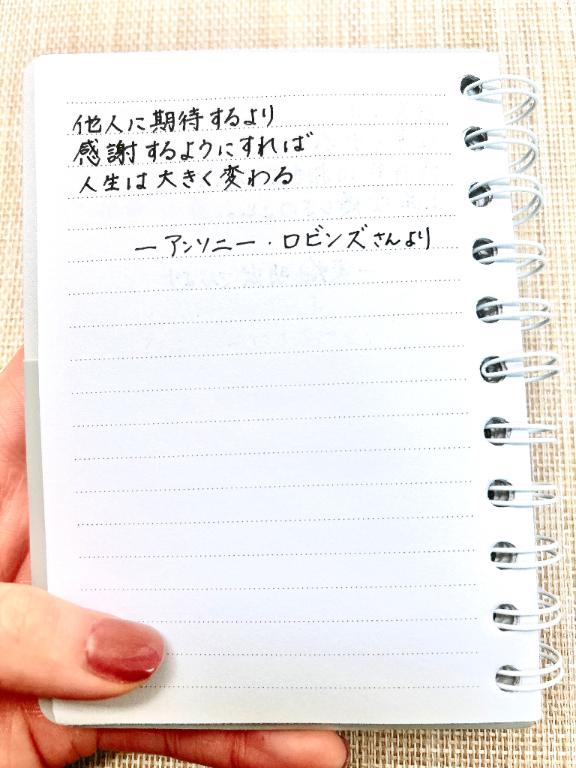 他人に期待するより
感謝するようにすれば
人生は大きく変わる
ーアンソニー・ロビンズさんより